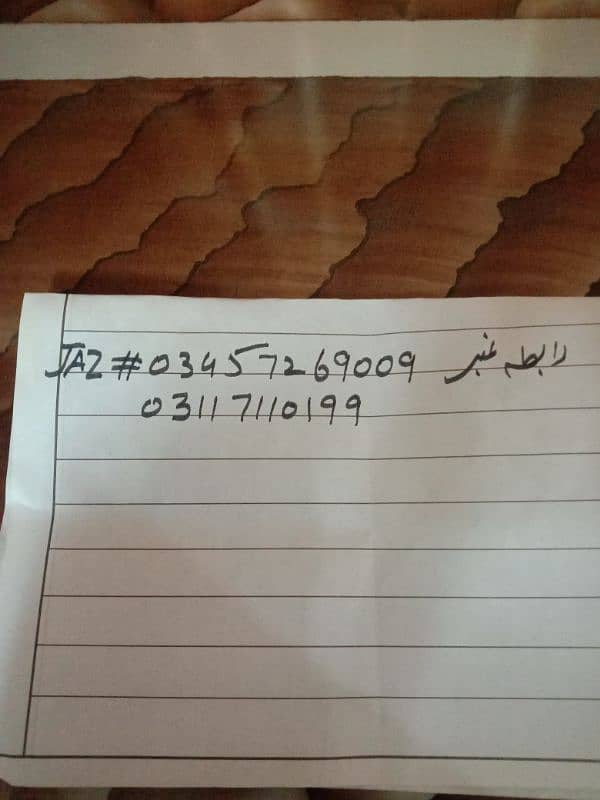 JAZ # 03457269009 رابطہ نمبر
03117110199